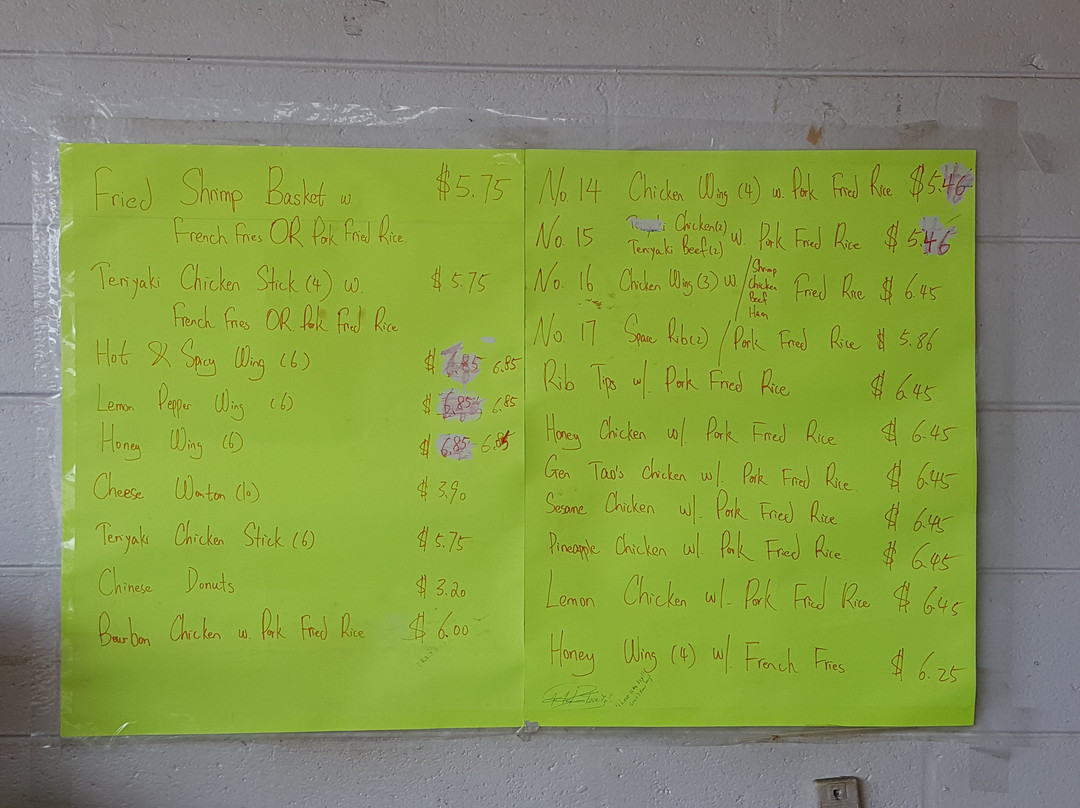 Fried Shrimp Basket w. $5.75
French Fries OR Pork Fried Rice
Teriyaki Chicken Stick (4) w. $5.75
French Fries OR Pork Fried Rice
Hot & Spicy Wing (6) $ 6.85 6.85
Lemon Pepper Wing (6) $ 6.85 6.85
Honey Wing (6) $ 6.85 6.85
Cheese Wonton (10) $ 3.90
Teriyaki Chicken Stick (6) $ 5.75
Chinese Donuts $ 3.20
Bourbon Chicken w. Pork Fried Rice $ 6.00
No. 14 Chicken Wing (4) w. Pork Fried Rice $5.46
No. 15 Chicken(2) Teriyaki Beef(2) w. Pork Fried Rice $ 5.46
No. 16 Chicken Wing (3) w/ Shrimp Chicken Beef Ham Fried Rice $ 6.45
No. 17 Spare Rib(2) / Pork Fried Rice $ 5.86
Rib Tips w/. Pork Fried Rice $ 6.45
Honey Chicken w/. Pork Fried Rice $ 6.45
Gen Tao's Chicken w/. Pork Fried Rice $ 6.45
Sesame Chicken w/. Pork Fried Rice $ 6.45
Pineapple Chicken w/. Pork Fried Rice $ 6.45
Lemon Chicken w/. Pork Fried Rice $ 6.45
Honey Wing (4) w/. French Fries $ 6.25